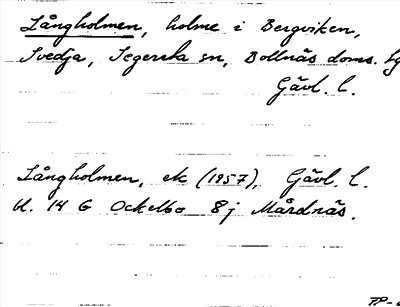 Långholmen, holme i Bergviken,
Svedja, Segersta sn, Bollnäs doms.
Gävl. l.
Långholmen, ek (1957), Gävl. l.
bl. 14 G Ockelbo 8 j Mårdnäs.